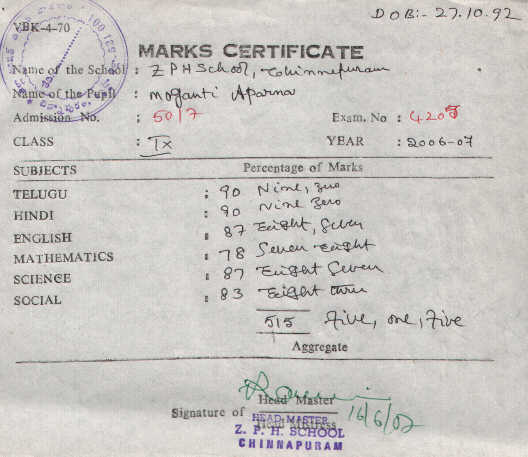 DOB:- 27.10.92
VBK-4-70
MARKS CERTIFICATE
Name of the School : Z P H School, Chinnapuram
Name of the Pupil : Moganti Aparna
Admission No. : 5017 Exam. No : 4205
CLASS : IX YEAR : 2006-07
SUBJECTS Percentage of Marks
TELUGU : 90 Nine, Zero
HINDI : 90 Nine Zero
ENGLISH : 87 Eight, Seven
MATHEMATICS : 78 Seven Eight
SCIENCE : 87 Eight Seven
SOCIAL : 83 Eight three
515 Five, one, Five
Aggregate
Signature of Head Master
Head Mistress
16/6/07
HEAD MASTER
Z. P. H. SCHOOL
CHINNAPURAM